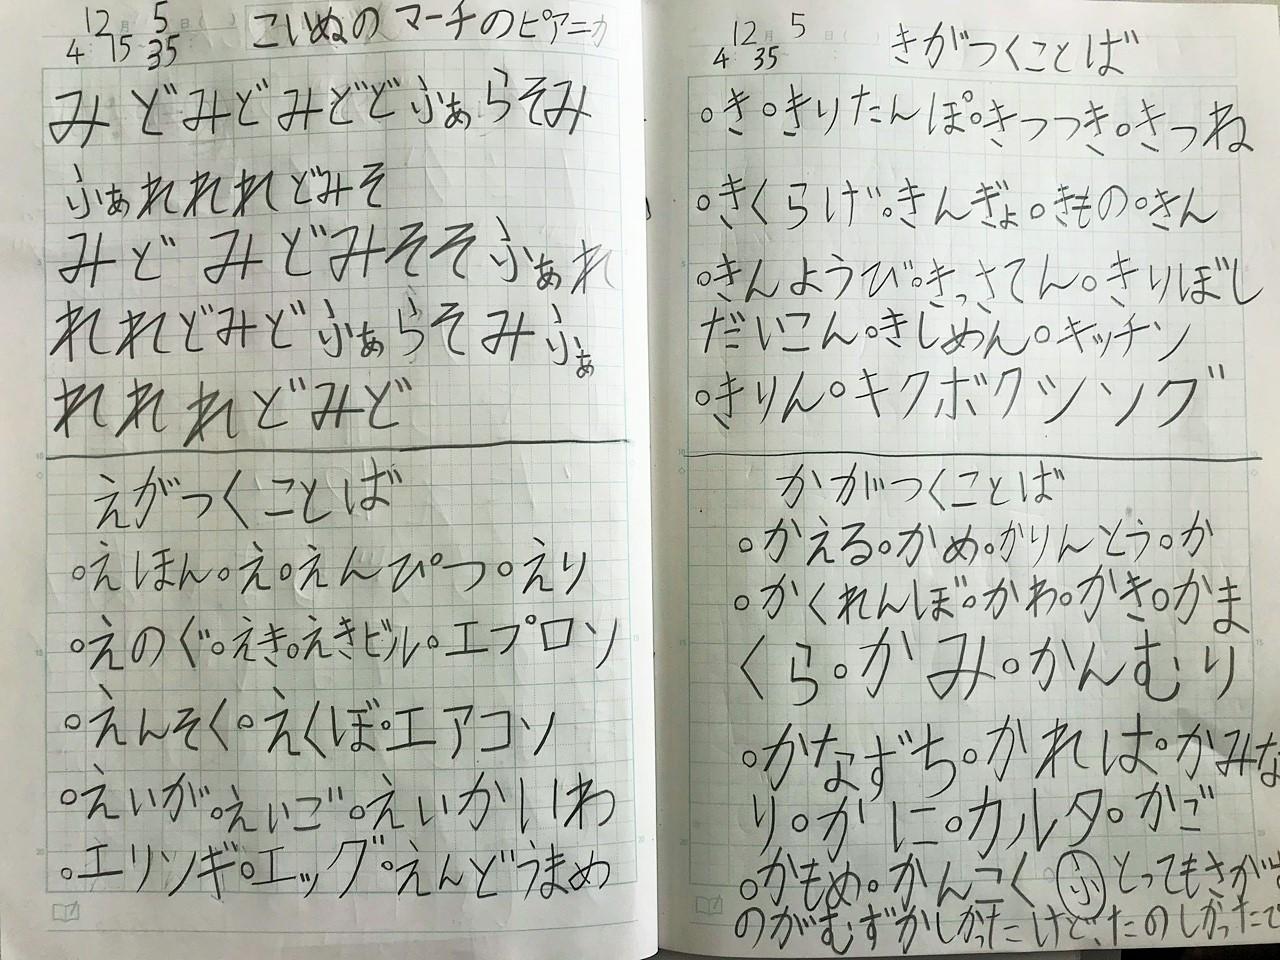 12月 5日 ( )
4 15 35
こいぬの マーチのピアニカ
み どみどみどど ふぁらそみ
ふぁれれれ どみそ
みど みどみそそ ふぁれ
れれどみど ふぁらそみ ふぁ
れれれどみど
えがつくことば
○えほん○え○えんぴつ○えり
○えのぐ○えき○えきビル○エプロン
○えんそく○えくぼ○エアコン
○えいが○えいご○えいかいわ
○エリンギ○エッグ○えんどうまめ
12月 5日 ( )
4 35
きがつくことば
○き○きりたんぽ○きつつき○きつね
○きくらげ○きんぎょ○きもの○きん
○きんようび○きっさてん○きりぼし
だいこん○きしめん○キッチン
○きりん○キクボクツソグ
かがつくことば
○かえる○かめ○かりんとう○か
○かくれんぼ○かわ○かき○かま
くら○かみ○かんむり
○かなずち○かれは○かみな
り○かに○カルタ○かご
○かもめ○かんこく ㋛ とってもさがす
のがむずかしかったけど、たのしかったで